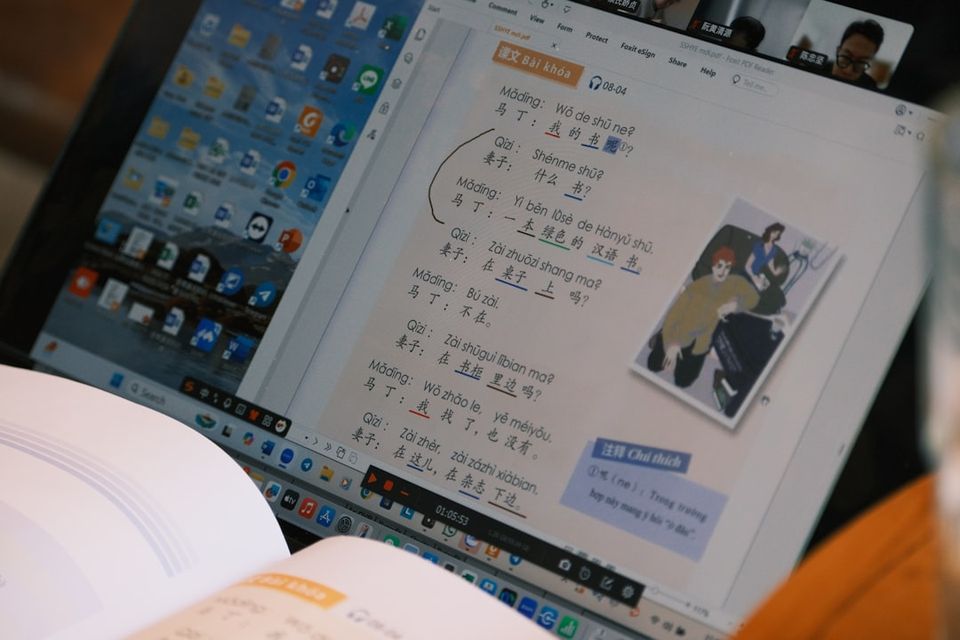 阮黄清源
陈志坚
Start
Comment
View
Form
Protect
Foxit eSign
Share
Help
Tell me...
SSHYE mới.pdf - Foxit PDF Reader
SSHYE mới.pdf
课文 Bài khóa
08-04
Mǎdīng: Wǒ de shū ne?
马丁：我的书呢①？
Qīzi: Shénme shū?
妻子：什么书？
Mǎdīng: Yì běn lǜsè de Hànyǔ shū.
马丁：一本绿色的汉语书。
Qīzi: Zài zhuōzi shang ma?
妻子：在桌子上吗？
Mǎdīng: Bú zài.
马丁：不在。
Qīzi: Zài shūguì lǐbian ma?
妻子：在书柜里边吗？
Mǎdīng: Wǒ zhǎo le, yě méiyǒu.
马丁：我找了，也没有。
Qīzi: Zài zhèr, zài zázhì xiàbian.
妻子：在这儿，在杂志下边。
注释 Chú thích
①呢（ne）: Trong trường
hợp này mang ý hỏi "ở đâu".
Search
01:05:53
Bài khóa
08-04
Mǎdīng
Qīzi